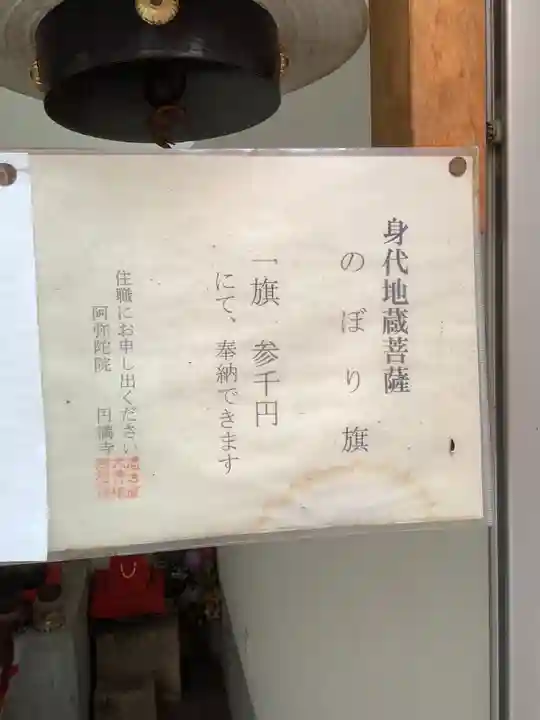 身代地蔵菩薩
のぼり旗
一旗 参千円
にて、奉納できます
住職にお申し出ください
阿弥陀院 円満寺